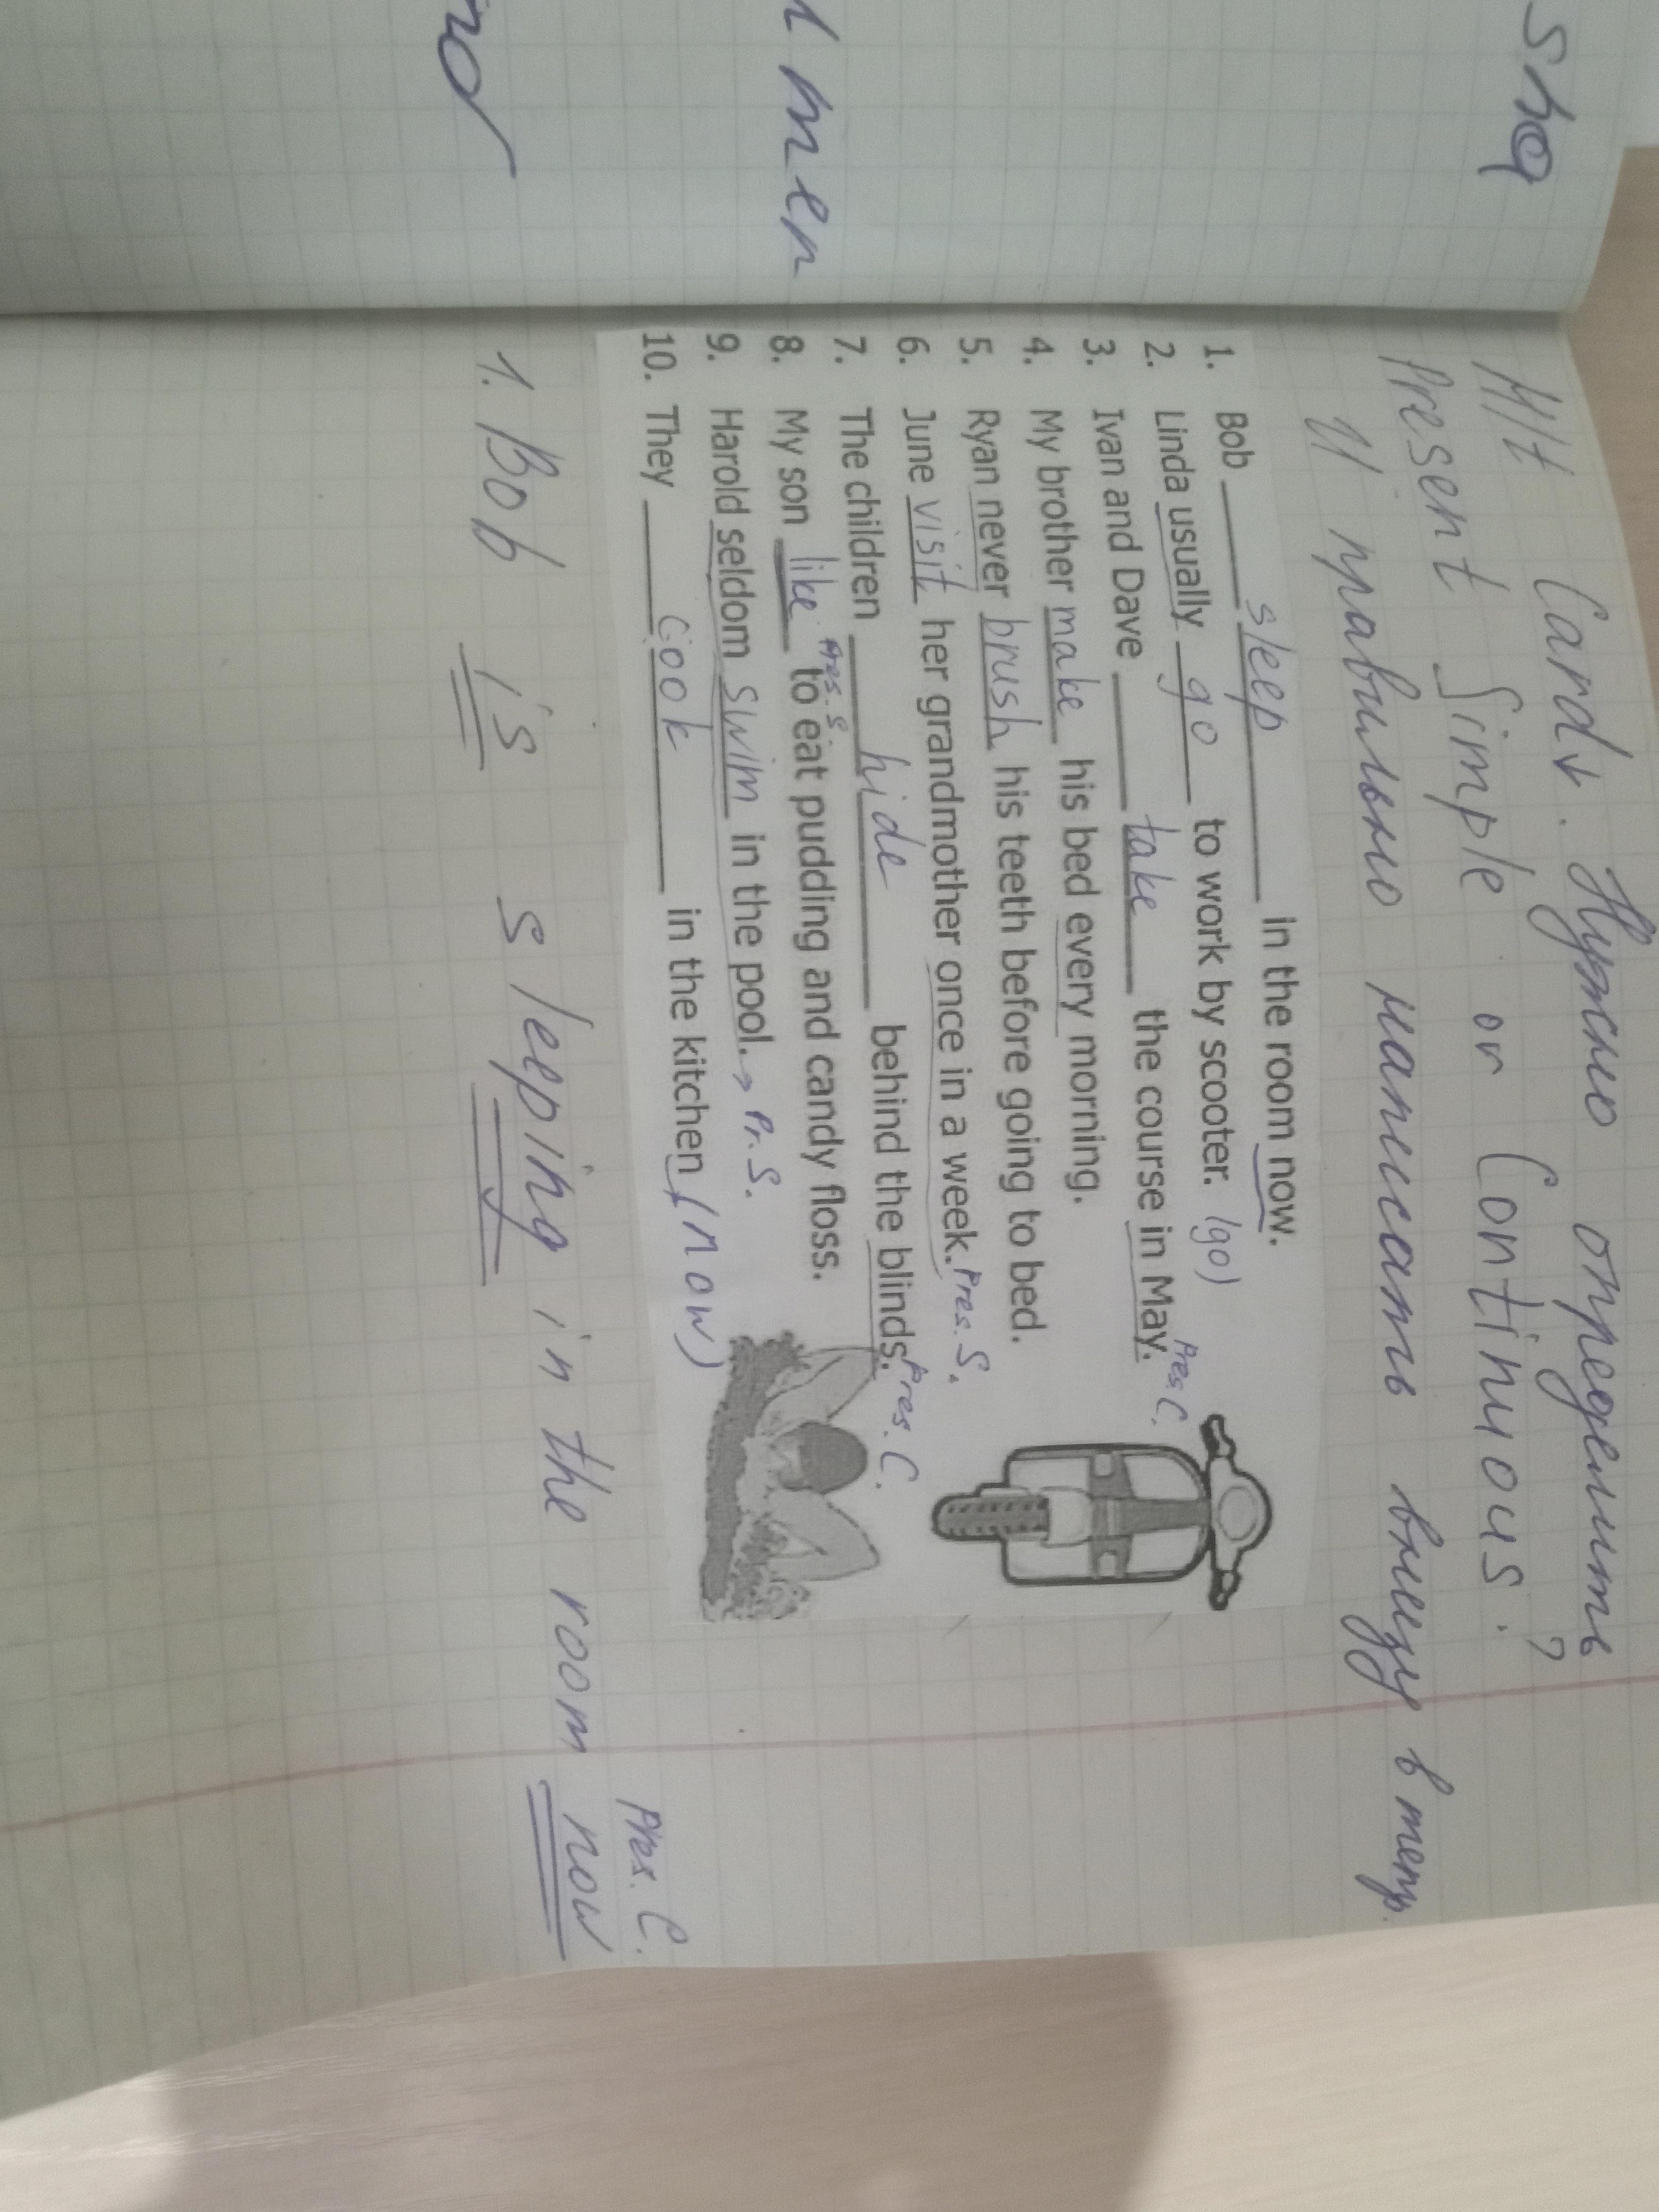 she
men
no
H/t Card↓. Нужно определить
Present Simple or Continuous?
И правильно написать внизу в тетр.
1. Bob ____ sleep ____ in the room now.
2. Linda usually go to work by scooter. (go)
3. Ivan and Dave ____ take ____ the course in May. Pres. C.
4. My brother make his bed every morning.
5. Ryan never brush his teeth before going to bed.
6. June visit her grandmother once in a week. Pres. S.
7. The children ____ hide ____ behind the blinds. Pres. C.
8. My son like to eat pudding and candy floss. Pres. S.
9. Harold seldom swim in the pool. → Pr. S.
10. They ____ cook ____ in the kitchen (now)
Pres. C.
1. Bob is sleeping in the room now